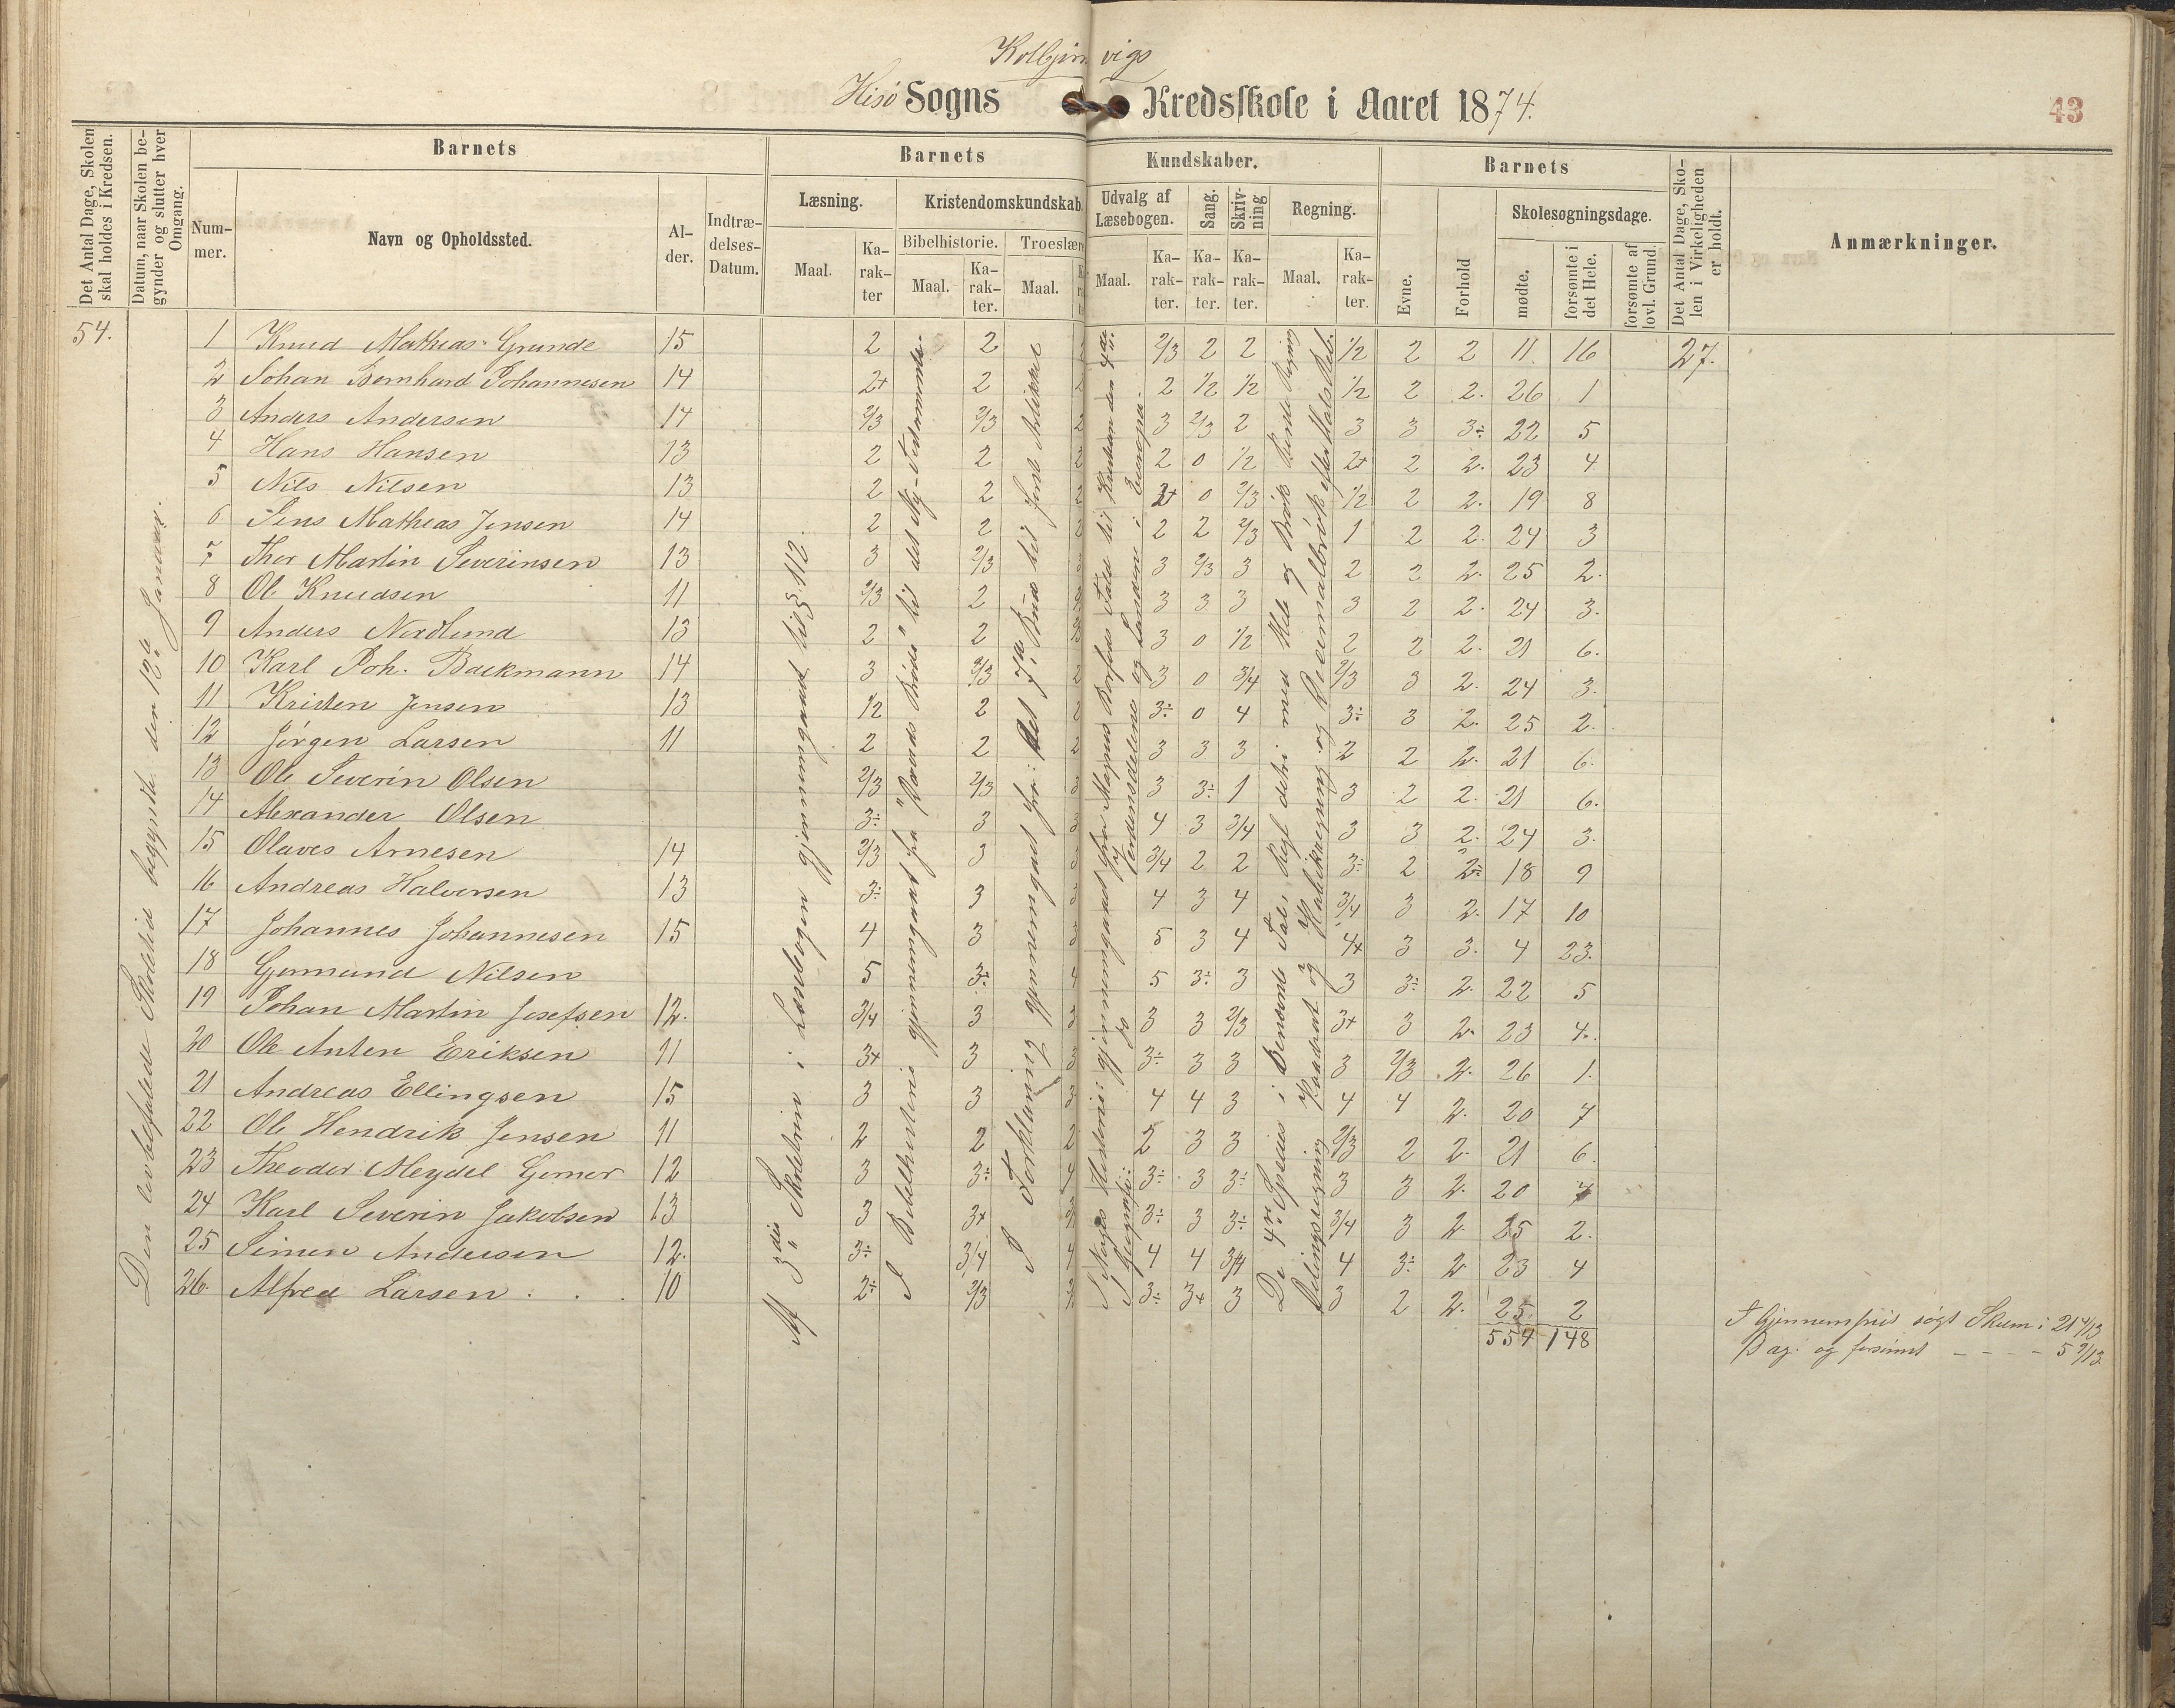 Kolbjørnsvigs
Hisø Sogns Kredsskole i Aaret 1874.
43
Det Antal Dage, Skolen skal holdes i Kredsen.
Datum, naar Skolen begynder og slutter hver Omgang.
Barnets
Nummer.
Navn og Opholdssted.
Alder.
Indtrædelses-Datum.
Barnets Kundskaber.
Læsning.
Maal.
Karakter
Kristendomskundskab.
Bibelhistorie.
Maal.
Karakter.
Troeslære
Maal.
Udvalg af Læsebogen.
Maal.
Karakter.
Sang.
Karakter.
Skrivning
Karakter.
Regning.
Maal.
Karakter.
Barnets
Evne.
Forhold
Skolesøgningsdage.
mødte.
forsømte i det Hele.
forsømte af lovl. Grund.
Det Antal Dage, Skolen i Virkeligheden er holdt.
Anmærkninger.
54.
1 Knud Mathias Grunde 15 2 2 2 2/3 2 2 1/2 2 2 11 16 27.
2 Johan Bernhard Johannesen 14 2+ 2 2 2 1/2 1/2 1/2 2 2. 26 1
3 Anders Andersen 14 2/3 2/3 2 3 2/3 2 3 3 3÷ 22 5
4 Hans Hansen 13 2 2 2 2 0 1/2 2+ 2 2. 23 4
5 Nils Nilsen 13 2 2 2 2+ 0 2/3 1/2 2 2. 19 8
6 Jens Mathias Jensen 14 2 2 2 2 2 2/3 1 2 2. 24 3
7 Thor Martin Severinsen 13 3 2/3 3 2/3 3 2 2 2. 25 2.
8 Ole Knudsen 11 2/3 2 3 3 3 3 2 2. 24 3.
9 Anders Nordlund 13 2 2 3 0 1/2 2 2 2. 21 6.
10 Karl Joh. Backmann 14 3 2/3 2 3 0 3/4 2/3 3 2. 24 3.
11 Kristen Jensen 13 1/2 2 2 3÷ 0 4 3÷ 3 2. 25 2.
12 Jørgen Larsen 11 2 2 2 3 3 3 2 2 2. 21 6.
13 Ole Severin Olsen 2/3 2/3 3 3 3÷ 1 3 2 2. 21 6.
14 Alexander Olsen 3÷ 3 3 4 3 3/4 3 3 2. 24 3.
15 Olaves Arnesen 14 2/3 3 3 3/4 2 2 3÷ 2 2÷ 18 9
16 Andreas Halversen 13 3÷ 3 3 4 3 4 3/4 3 2. 17 10
17 Johannes Johannesen 15 4 3 3 5 3 4 4+ 3 3. 4 23.
18 Gjermund Nilsen 5 3÷ 4 5 3÷ 3 3 3÷ 2. 22 5
19 Johan Martin Josefsen 12. 3/4 3 3 3 3 2/3 3+ 3 2. 23 4.
20 Ole Anton Eriksen 11 3+ 3 3 3÷ 3 3 3 2/3 2. 26 1.
21 Andreas Ellingsen 15 3 3 3 4 4 3 4 4 2. 20 7
22 Ole Hendrik Jensen 11 2 2 2 2 3 3 2/3 2 2. 21 6.
23 Theodor Meydel Gomer 12 3 3÷ 4 3÷ 3 3÷ 3 3 2. 20 7
24 Karl Severin Jakobsen 13 3 3+ 3÷ 3 3÷ 3/4 3 2. 25 2.
25 Simen Andersen 12. 3÷ 3/4 4 4 4 3/4 4 3÷ 2 23 4
26. Alfred Larsen . . . 10 2÷ 2/3 3÷ 3+ 3 3 2 2. 25. 2
554 148
Den lovbefalede Skoletid begyndte den 12te Januar.
Af 3die Skoletrin i Læsebogen gjennemgaaet til S. 112.
I Bibelhistorie gjennemgaaet fra "Paaves Bøde" til det Ny-Testamente.
I Forklaring gjennemgaaet fra: det 7de Bud til første Artikkel
I Norges Historie: gjennemgaaet fra Magnus Barfods Død til Kristian den 4de.
I Geografi: Verdensdelene og Landene i Europa.
De 4re Species i Benævnte Tal, Regl detri med Hele og Brøk
Delingsregning Kvadrat og Kubikregning og Decimalbrøk
I Gjennemsnit søgt Skum: 21 4/13
Dag. og forsømt - - - - 5 9/13.